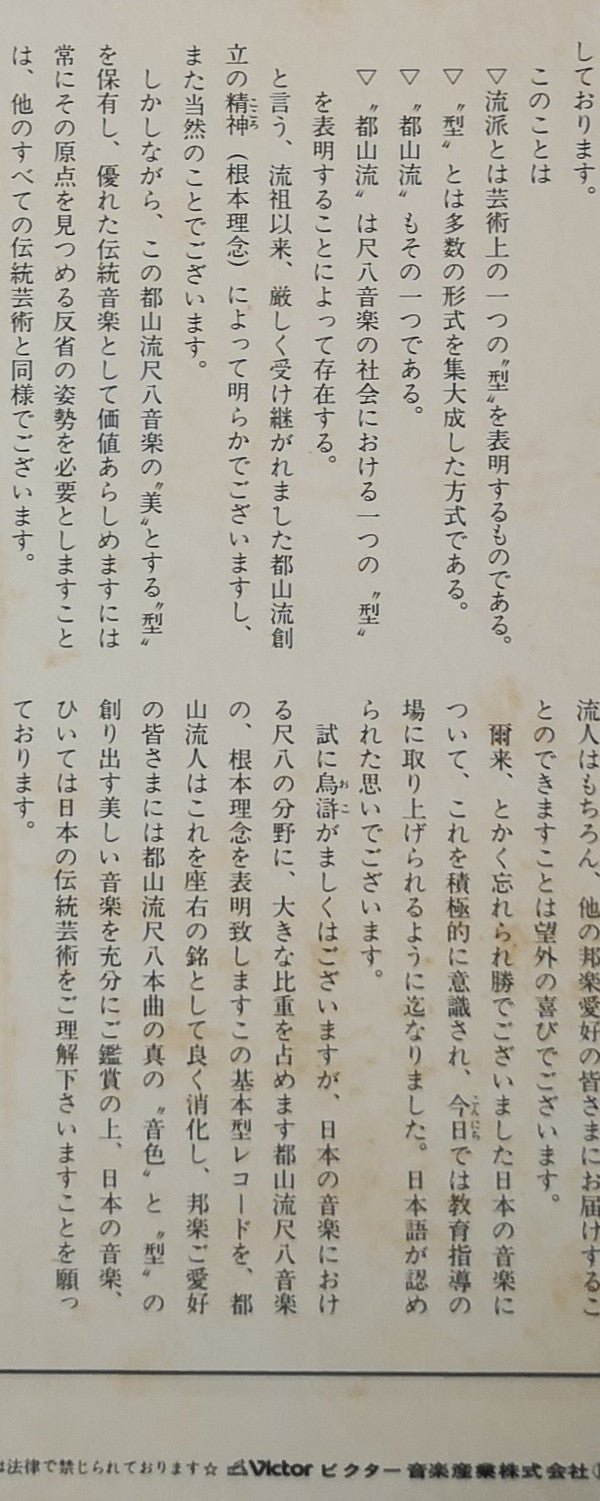 しております。
このことは
▽流派とは芸術上の一つの〝型〟を表明するものである。
▽〝型〟とは多数の形式を集大成した方式である。
▽〝都山流〟もその一つである。
▽〝都山流〟は尺八音楽の社会における一つの〝型〟
を表明することによって存在する。
と言う、流祖以来、厳しく受け継がれました都山流創
立の精神（根本理念）によって明らかでございますし、
こころ
また当然のことでございます。
しかしながら、この都山流尺八音楽の〝美〟とする〝型〟
を保有し、優れた伝統音楽として価値あらしめますには
常にその原点を見つめる反省の姿勢を必要としますこと
は、他のすべての伝統芸術と同様でございます。
流人はもちろん、他の邦楽愛好の皆さまにお届けするこ
とのできますことは望外の喜びでございます。
爾来、とかく忘れられ勝でございました日本の音楽に
ついて、これを積極的に意識され、今日では教育指導の
こんにち
場に取り上げられるように迄なりました。日本語が認め
られた思いでございます。
試に烏滸がましくはございますが、日本の音楽におけ
おこ
る尺八の分野に、大きな比重を占めます都山流尺八音楽
の、根本理念を表明致しますこの基本型レコードを、都
山流人はこれを座右の銘として良く消化し、邦楽ご愛好
の皆さまには都山流尺八本曲の真の〝音色〟と〝型〟の
創り出す美しい音楽を充分にご鑑賞の上、日本の音楽、
ひいては日本の伝統芸術をご理解下さいますことを願っ
ております。
は法律で禁じられております☆ Victor ビクター音楽産業株式会社